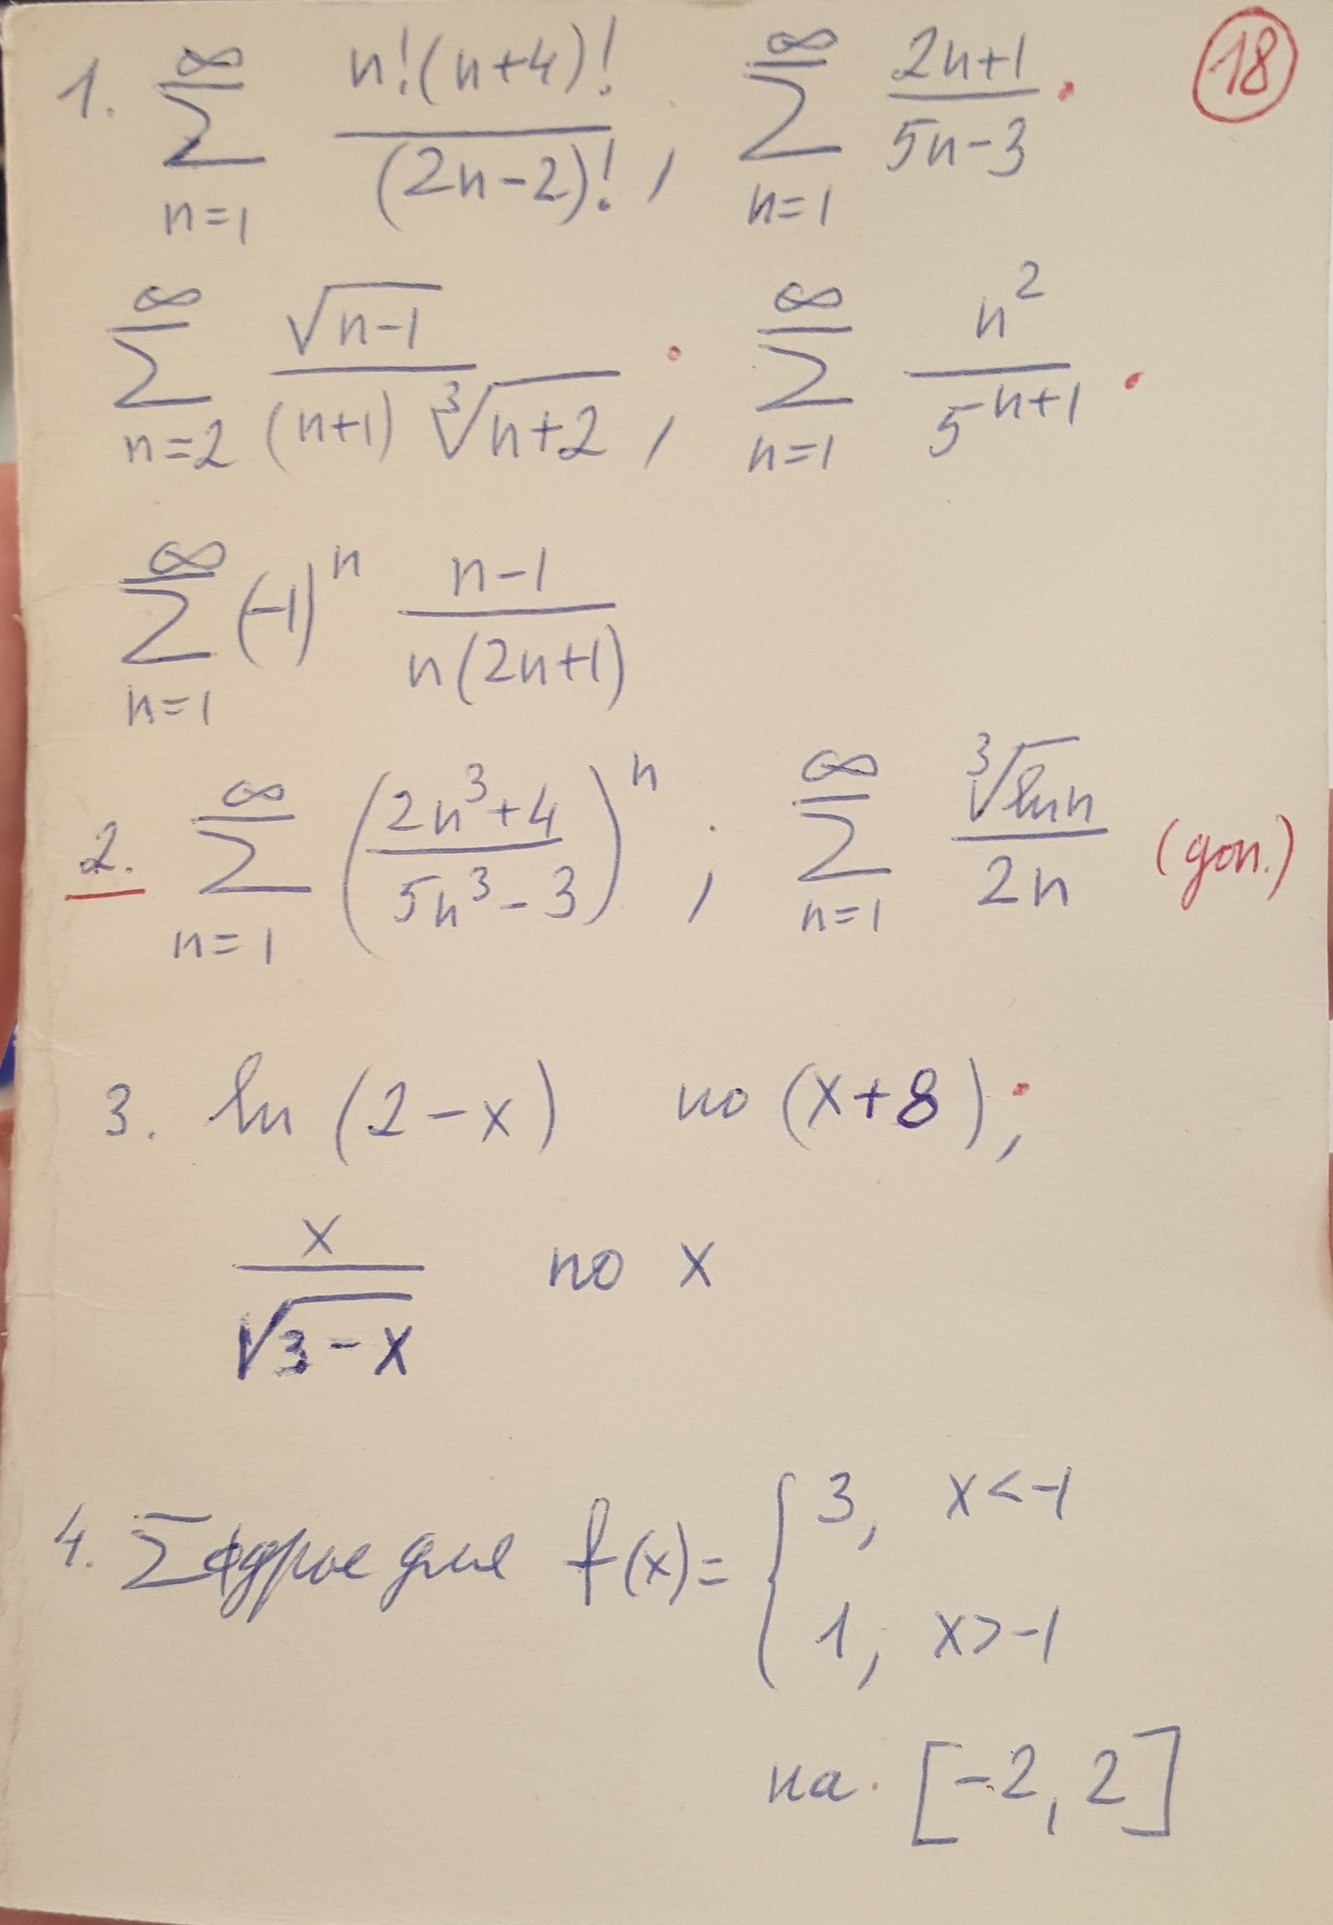 1. ∑_{n=1}^{∞} n!(n+4)! / (2n-2)! , ∑_{n=1}^{∞} (2n+1) / (5n-3) . 18
∑_{n=2}^{∞} √(n-1) / ((n+1) ∛(n+2)) ; ∑_{n=1}^{∞} n² / 5^{n+1} .
∑_{n=1}^{∞} (-1)^n (n-1) / (n(2n+1))
2. ∑_{n=1}^{∞} ((2n³+4) / (5n³-3))^n ; ∑_{n=1}^{∞} ∛(ln n) / 2n (доп.)
3. ln(2-x) по (x+8);
x / √(3-x) по x
4. ∑ Фурье для f(x)= { 3, x<-1
1, x>-1
на [-2, 2]